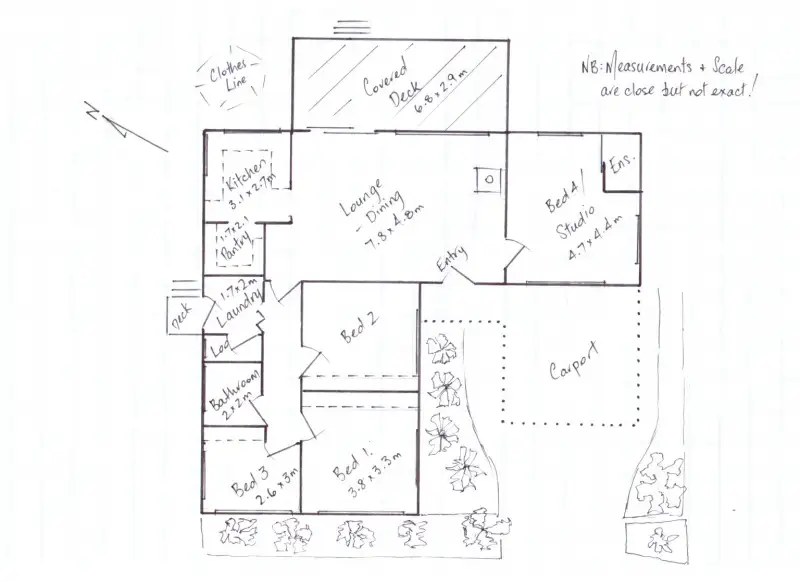 NB: Measurements + Scale
are close but not exact!
Clothes
Line
Covered
Deck
6.8 x 2.9m
N
Kitchen
3.1 x 2.7m
Lounge
- Dining
7.8 x 4.8m
Ens.
Bed 4/
Studio
4.7 x 4.4m
1.7 x 2.1
Pantry
Entry
1.7 x 2m
Laundry
Deck
Loo
Bed 2
Carport
Bathroom
2 x 2m
Bed 3
2.6 x 3m
Bed 1.
3.8 x 3.3m